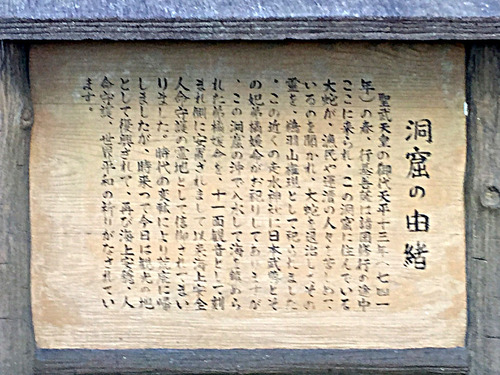 洞窟の由緒
聖武天皇の御代天平十三年(七四一
年)の春、行基菩薩は諸国修行の途中
ここに来られ、この洞窟に住んでいる
大蛇が、漁民や近海の人々を苦しめて
いるのを聞かれ、大蛇を退治し、その
霊を、鵜羽山権現として祀られました
。この近くの走水神社に日本武尊とそ
の妃弟橘媛命がお祀りしてありますが
、この洞窟の沖で入水し、海を鎮めら
れた弟橘媛命を、十一面観音として刻
まれ側に安置されまして以来海上安全
人命守護の霊地として信仰されてまい
りました。時代の変転により
しましたが、時来って今日に観光の地
として復興されて、再び海上安穏、人
命守護、世界平和の祈りがなされてい
ます。